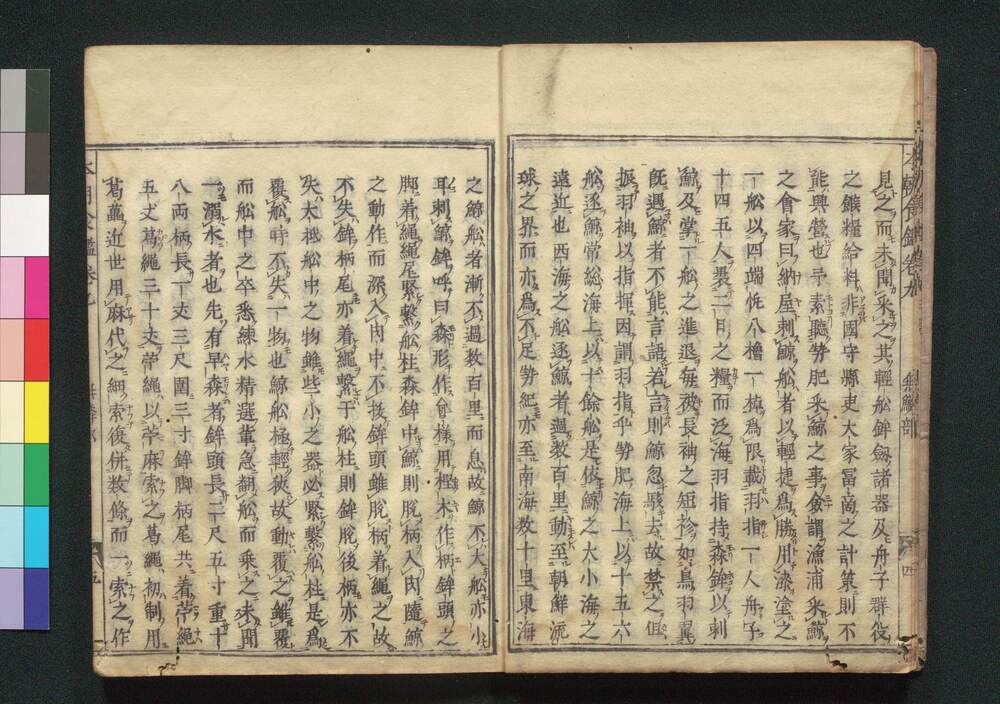 見之而未聞采之其輕舩鉾劔諸器及舟子群役
之餱糧給料非國守縣吏大家冨商之計策則不
能興營也予素聽勢肥采鯨之事僉謂漁浦采鯨
之會家曰納屋刺鯨舩者以輕捷爲勝用漆塗之
一舩以四端帆八櫓一楫爲限載羽指一人舟子
十四五人裹二日之糧而泛海羽指持森鉾以刺
鯨及掌一舩之進退毎被長袖之短袗如鳥羽翼
旣遇鯨者不能言語若言則鯨忽駭去故禁之但
振羽袖以指揮因謂羽指乎勢肥海上以十五六
舩逐鯨常総海上以十餘舩是依鯨之大小海之
遠近也西海之舩逐鯨者過数百里動至朝鮮流
球之界而亦爲不足勢紀亦至南海数十里東海
之鯨舩者漸不過数百里而息故鯨不大舩亦小
耳刺鯨鉾呼曰森形作㑹樣用樫木作柄鉾頭之
脚着繩繩尾緊繫舩柱森鉾中鯨則脫柄入肉隨鯨
之動作而深入肉中不拔鉾頭雖脫柄着繩之故
不失鉾柄尾亦着繩繫于舩柱則鉾脫後柄亦不
失大抵舩中之物雖些小之器必緊繫舩柱是爲
覆舩時不失一物也鯨舩極輕狹故動覆之雖覆
而舩中之卒悉練水精選輩急翻舩而乗之未聞
一溺水者也先有早森者鉾頭長二尺五寸重十
八両柄長一丈三尺圍三寸鉾脚柄尾共着苧繩
五丈葛繩三十丈苧繩以苧麻索之葛繩初制用
葛藟近世用麻代之細索復併数條而一索之作